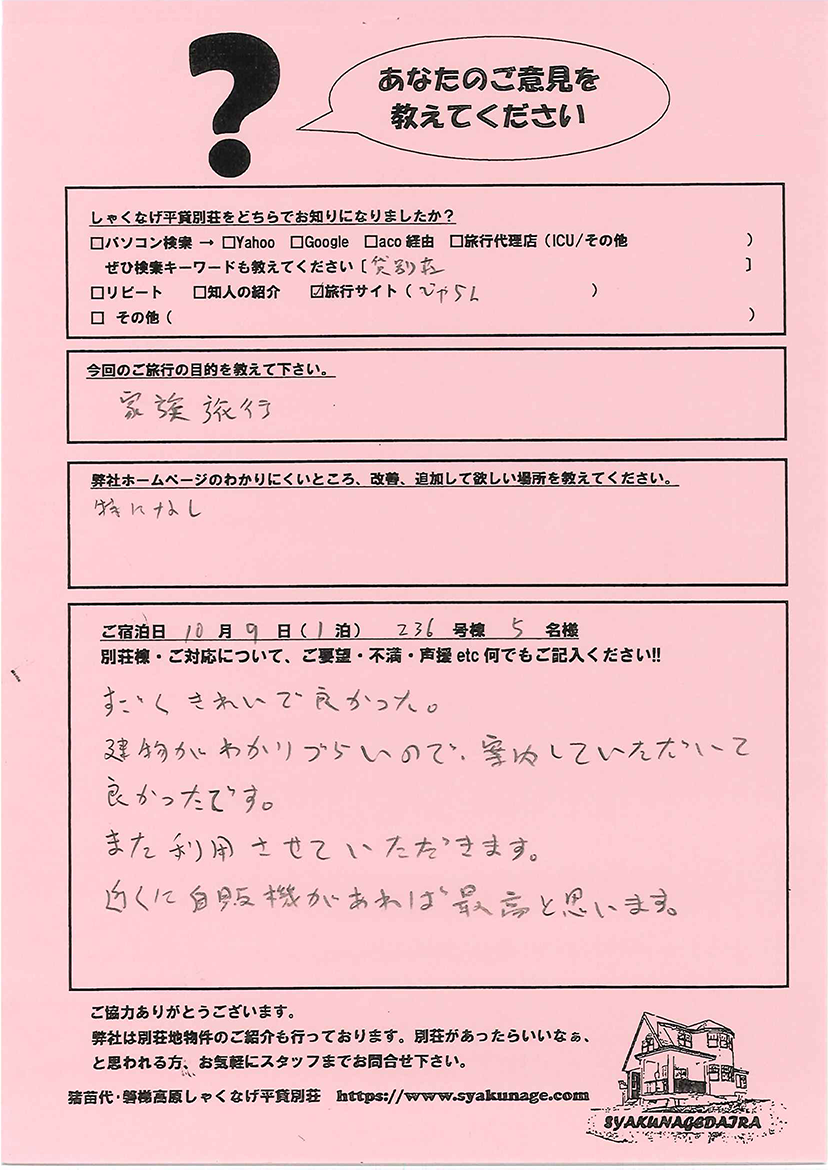 ?
あなたのご意見を
教えてください
しゃくなげ平貸別荘をどちらでお知りになりましたか?
□パソコン検索 → □Yahoo □Google □aco経由 □旅行代理店(ICU/その他 )
ぜひ検索キーワードも教えてください [貸別荘 ]
□リピート □知人の紹介 ☑旅行サイト( じゃらん )
□ その他( )
今回のご旅行の目的を教えて下さい。
家族旅行
弊社ホームページのわかりにくいところ、改善、追加して欲しい場所を教えてください。
特になし
ご宿泊日 10 月 9 日(1泊) 236 号棟 5 名様
別荘棟・ご対応について、ご要望・不満・声援 etc 何でもご記入ください!!
すごくきれいで良かった。
建物がわかりづらいので、案内していただいて
良かったです。
また利用させていただきます。
近くに自販機があれば最高と思います。
ご協力ありがとうございます。
弊社は別荘地物件のご紹介も行っております。別荘があったらいいなぁ、
と思われる方、お気軽にスタッフまでお問合せ下さい。
猪苗代・磐梯高原しゃくなげ平貸別荘 https://www.syakunage.com
SYAKUNAGEDAIRA